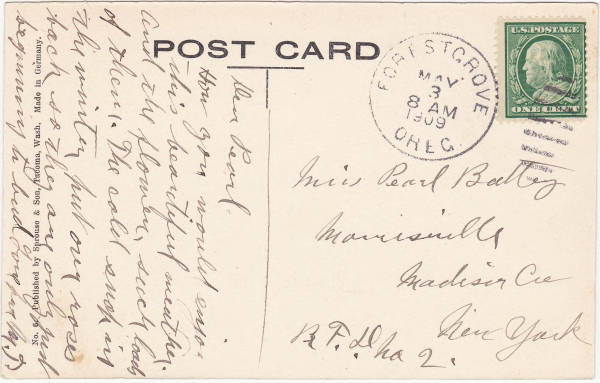 POST CARD
FORESTGROVE
MAY
3
8 AM
1909
OREG.
U.S. POSTAGE
ONE CENT
Dear Pearl-
How you would enjoy
this beautiful weather.
and the flowers, such loads
of them. The cold snap in
the winter put our roses
back so they are only just
beginning to bud
Miss Pearl Batley
Morrisville
Madison Co
New York
R.F.D. No 2.
No. 64. Published by Sprouse & Son, Tacoma, Wash. Made in Germany.